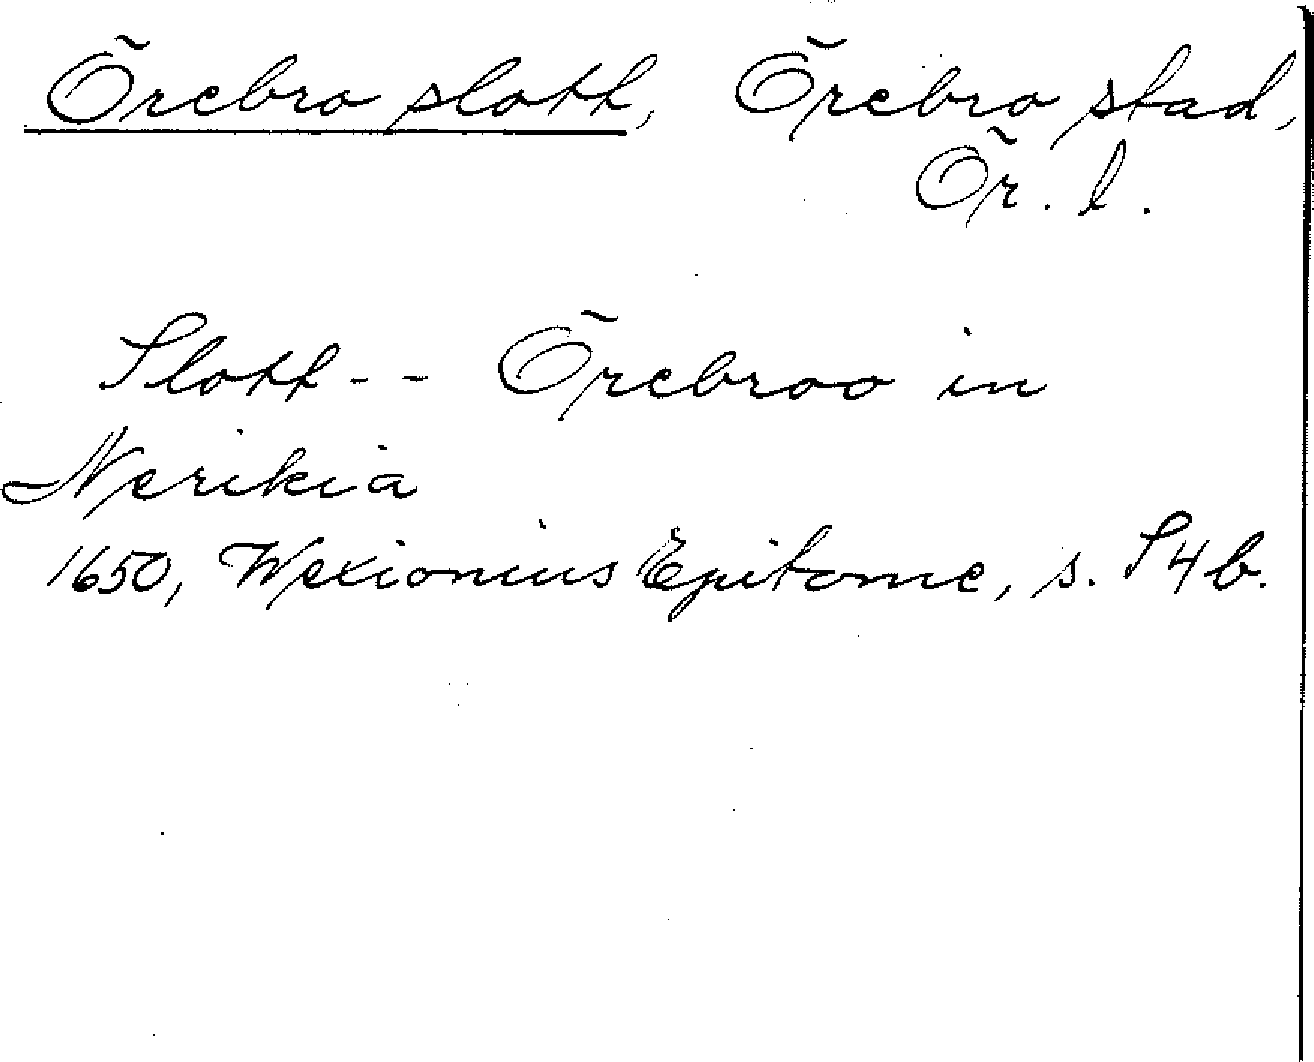 Örebro slott, Örebro stad,
Ör. l.
Slott - - Örebroo in
Nerikia
1650, Wexionius Epitome, s. S4b.